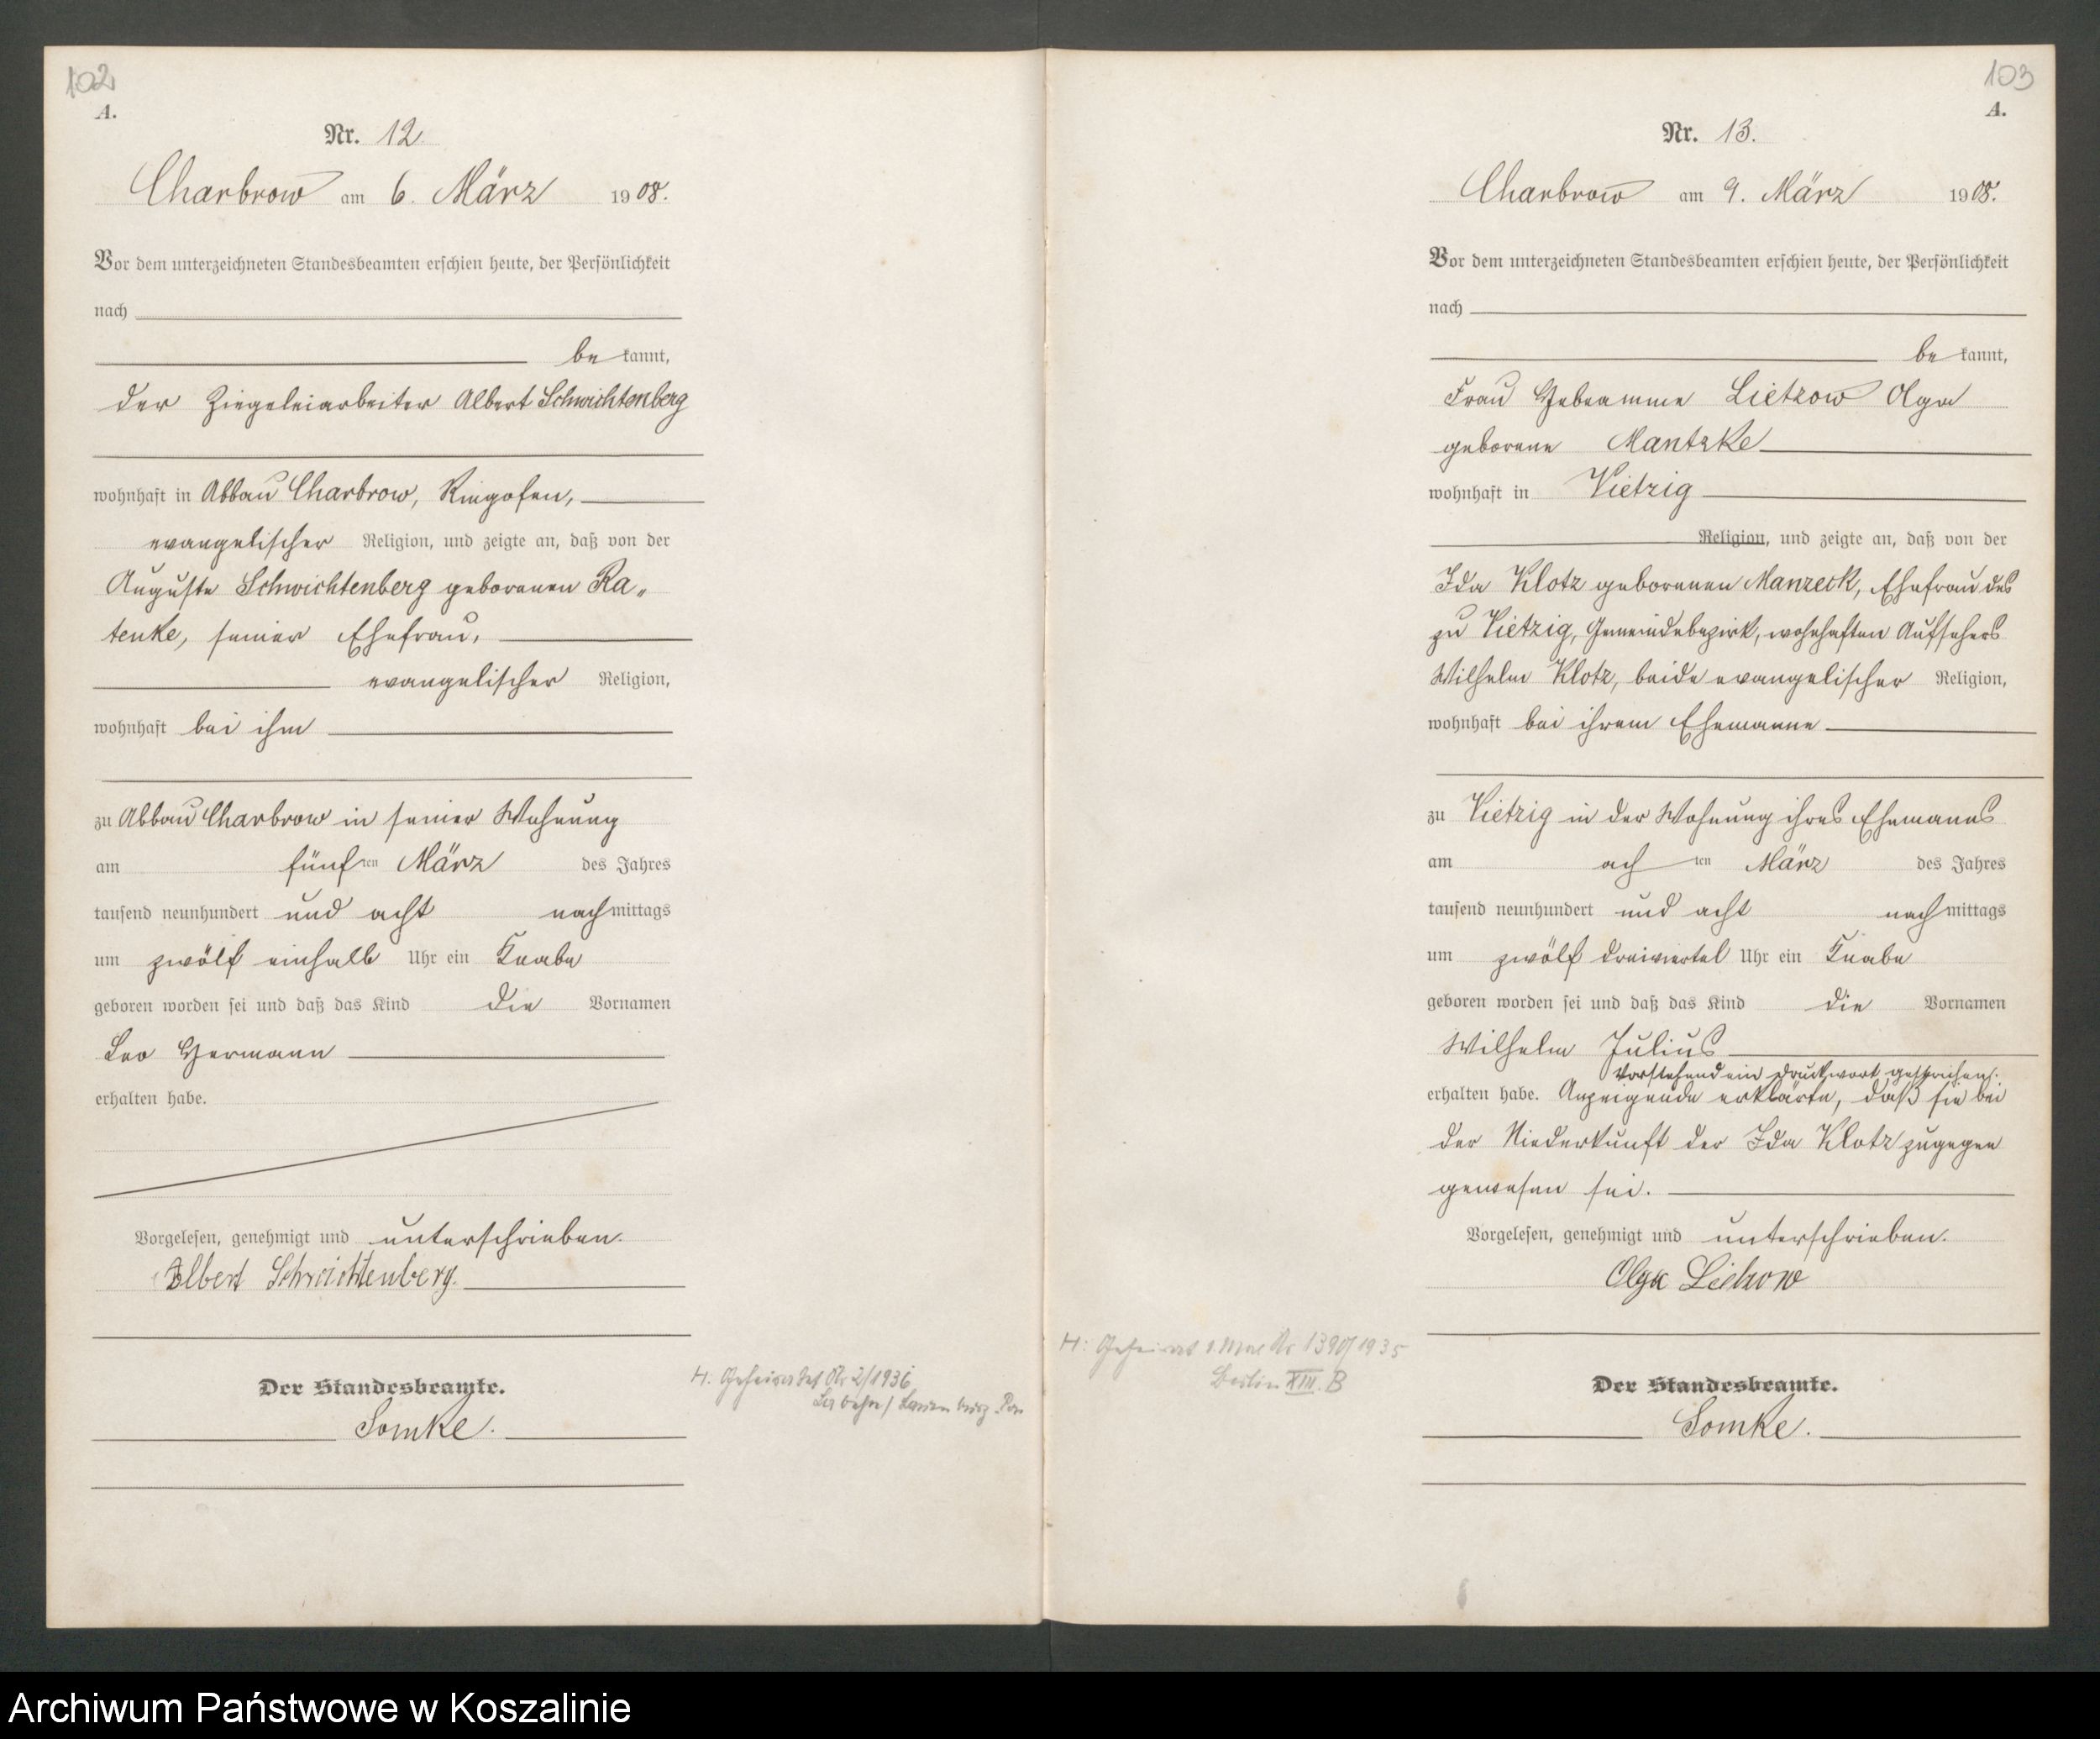 102
A.
Nr. 12.
Charbrow am 6. März 1908.
Vor dem unterzeichneten Standesbeamten erschien heute, der Persönlichkeit
nach
be kannt,
der Ziegeleiarbeiter Albert Schwichtenberg
wohnhaft in Abbau Charbrow, Ringofen,
evangelischer Religion, und zeigte an, daß von der
Auguste Schwichtenberg geborenen Ra„
tenke, seiner Ehefrau,
evangelischer Religion,
wohnhaft bei ihm
zu Abbau Charbrow in seiner Wohnung
am fünften März des Jahres
tausend neunhundert und acht nachmittags
um zwölf einhalb Uhr ein Knabe
geboren worden sei und daß das Kind die Vornamen
Leo Hermann
erhalten habe.
Vorgelesen, genehmigt und unterschrieben.
Albert Schwichtenberg.
Der Standesbeamte.
Somke.
H. Geheiratet Nr 2/1936
/ Lauenburg Pom
103
A.
Nr. 13.
Charbrow am 9. März 1908.
Vor dem unterzeichneten Standesbeamten erschien heute, der Persönlichkeit
nach
be kannt,
Frau Hebeamme Lietzow Olga
geborene Mantzke
wohnhaft in Vietzig
Religion, und zeigte an, daß von der
Ida Klotz geborenen Manzeck, Ehefrau des
zu Vietzig, Gemeindebezirk, wohnhaften Aufsehers
Wilhelm Klotz, beide evangelischer Religion,
wohnhaft bei ihrem Ehemanne
zu Vietzig in der Wohnung ihres Ehemanns
am achten März des Jahres
tausend neunhundert und acht nachmittags
um zwölf dreiviertel Uhr ein Knabe
geboren worden sei und daß das Kind die Vornamen
Wilhelm Julius
Vorstehend ein Druckwort gestrichen.
erhalten habe. Anzeigende erklärte, daß sie bei
der Niederkunft der Ida Klotz zugegen
gewesen sei.
Vorgelesen, genehmigt und unterschrieben.
Olga Lietzow
Der Standesbeamte.
Somke.
H: Geheirat 1. Mal Nr 1390/1935
Berlin XIII. B
Archiwum Państwowe w Koszalinie